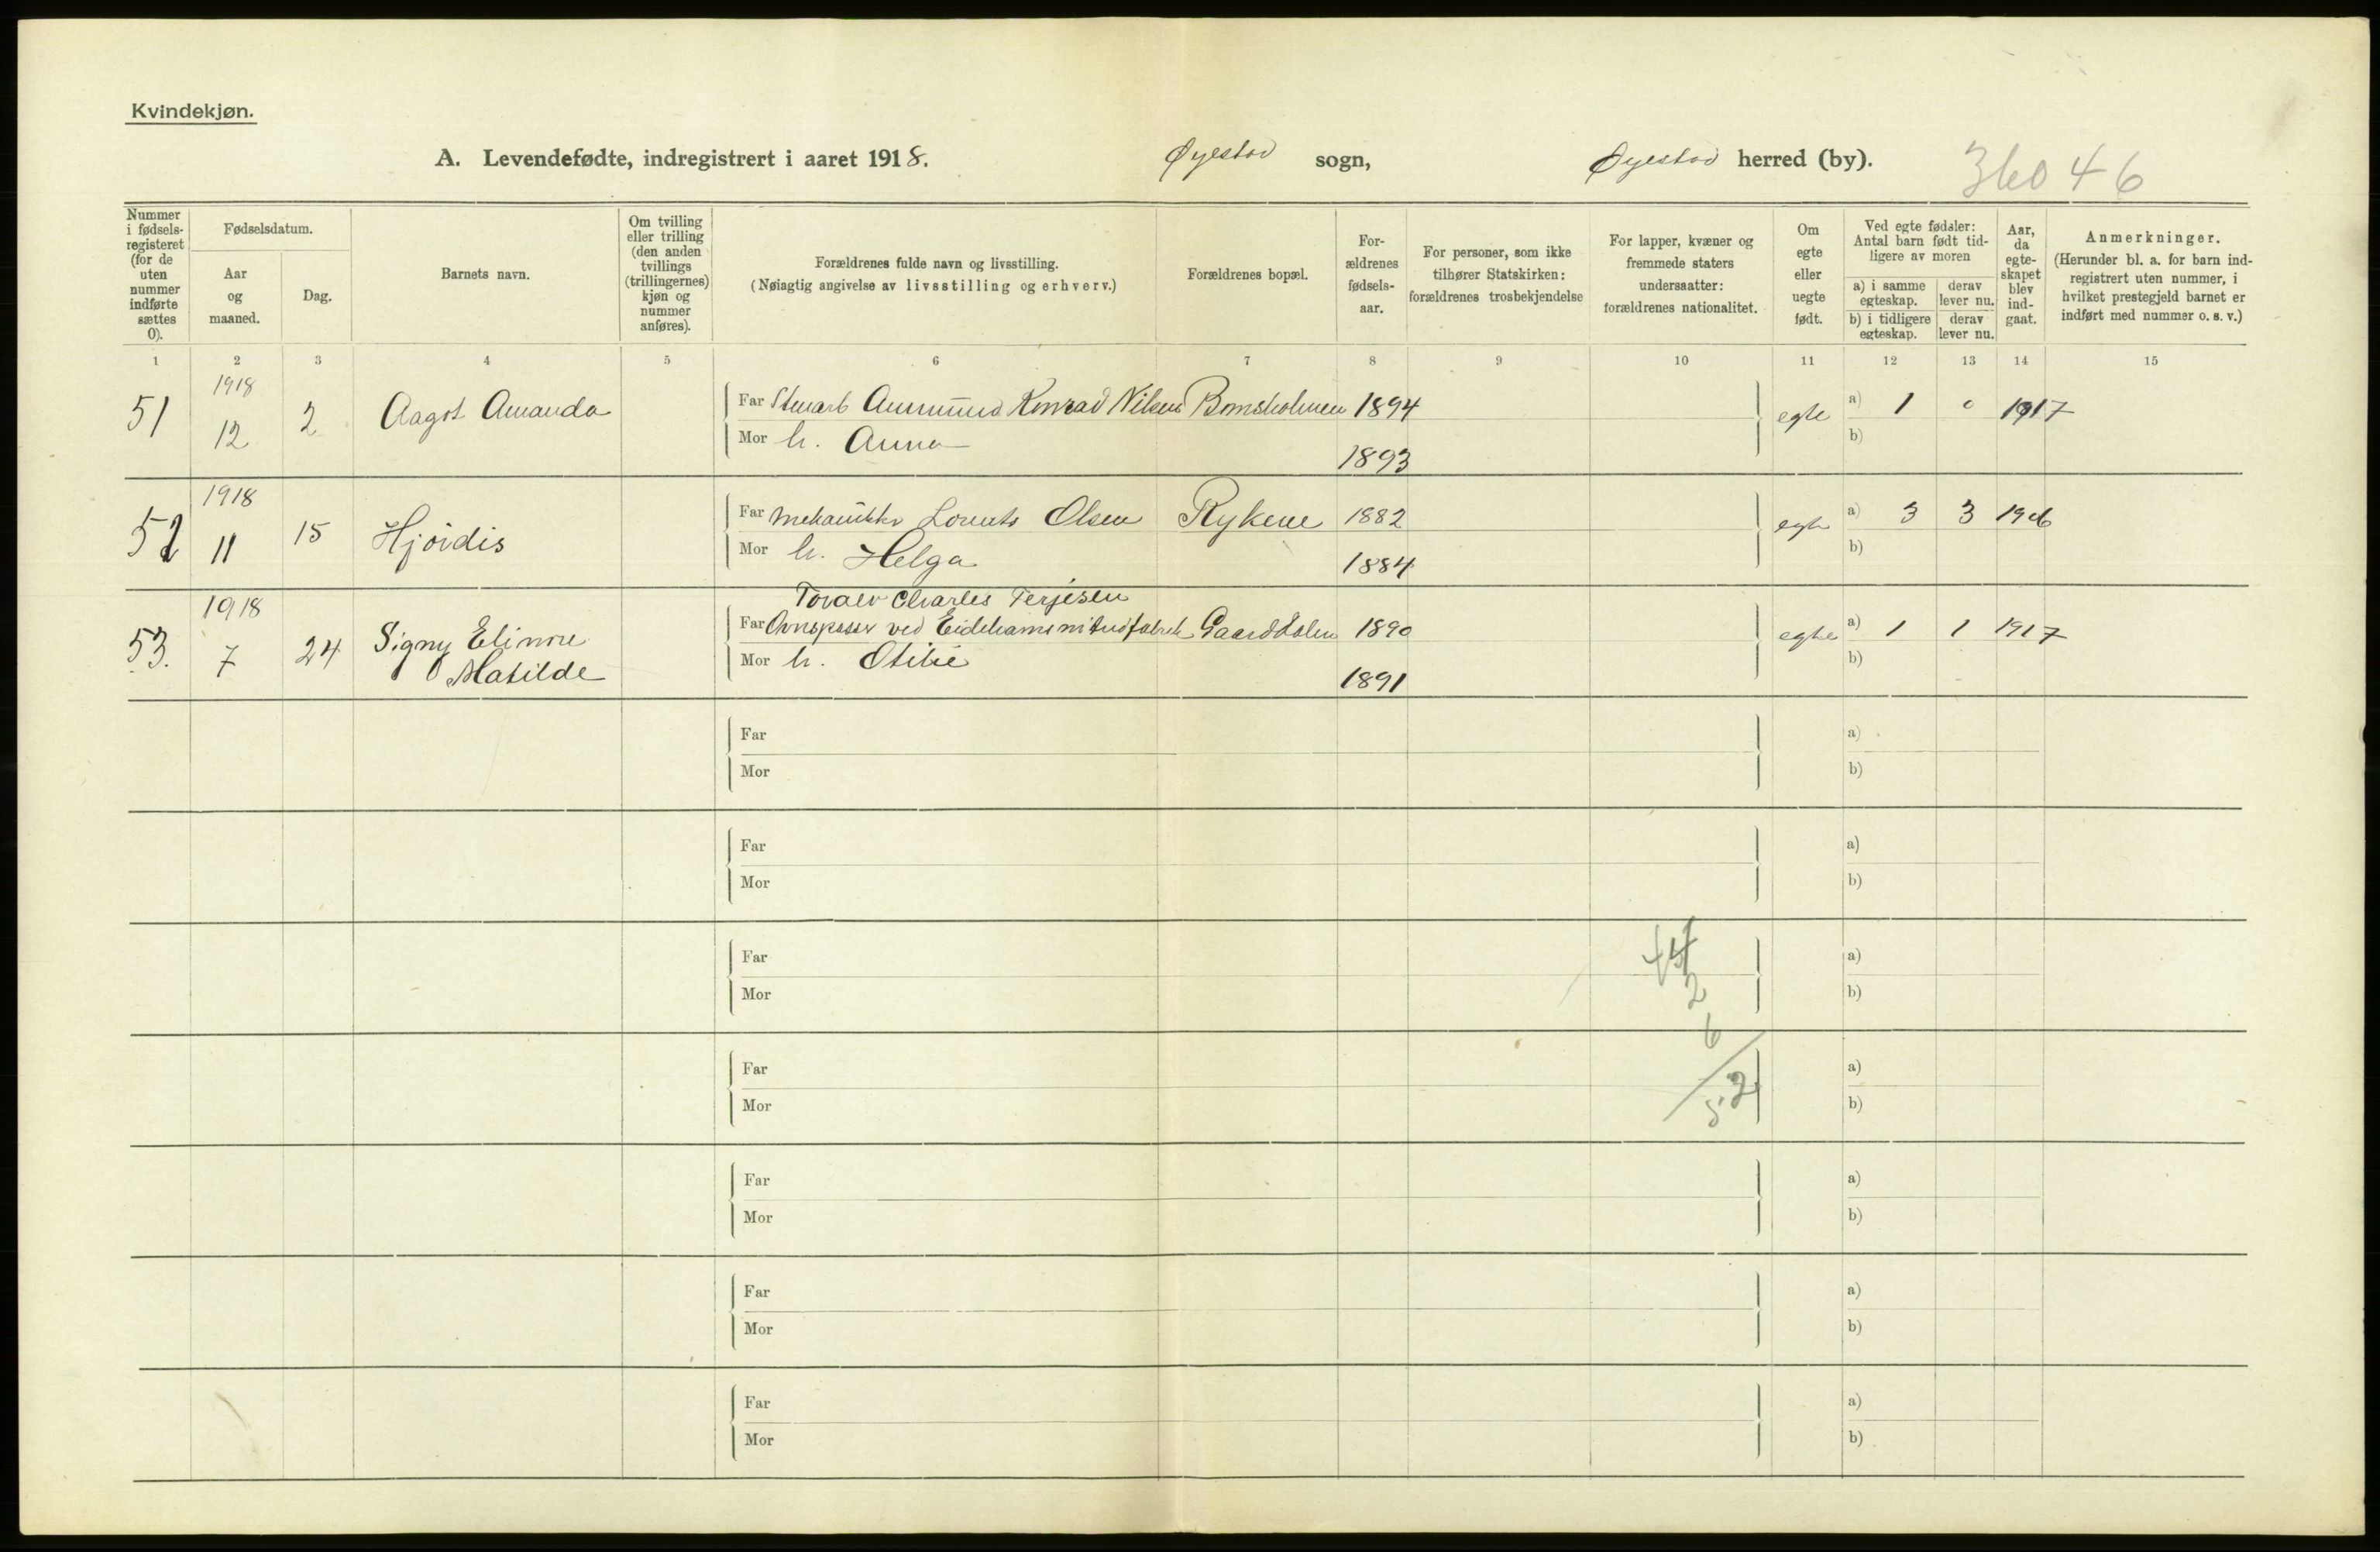 Kvindekjøn.
A. Levendefødte, indregistrert i aaret 1918. Øyestad sogn, Øyestad herred (by). 36046
Nummer i fødselsregisteret (for de uten nummer indførte sættes 0).
Fødselsdatum.
Aar og maaned.
Dag.
Barnets navn.
Om tvilling eller trilling (den anden tvillings (trillingernes) kjøn og nummer anføres).
Forældrenes fulde navn og livsstilling.
(Nøiagtig angivelse av livsstilling og erhverv.)
Forældrenes bopæl.
Forældrenes fødselsaar.
For personer, som ikke tilhører Statskirken: forældrenes trosbekjendelse
For lapper, kvæner og fremmede staters undersaatter: forældrenes nationalitet.
Om egte eller uegte født.
Ved egte fødsler: Antal barn født tidligere av moren
a) i samme egteskap. derav lever nu.
b) i tidligere egteskap. derav lever nu.
Aar, da egteskapet blev indgaat.
Anmerkninger.
(Herunder bl. a. for barn indregistrert uten nummer, i hvilket prestegjeld barnet er indført med nummer o. s. v.)
1 2 3 4 5 6 7 8 9 10 11 12 13 14 15
51 1918 12 2 Aagot Amanda Far Stuart Konrad Nilsen Bomsholmen 1894 egte a) 1 0 1917
Mor h. Anna 1893 b)
52 1918 11 15 Hjørdis Far Mekanikker Lorents Olsen Rykene 1882 egte a) 3 3 1906
Mor h. Helga 1884 b)
Toralv Charles Terjesen
53. 1918 7 24 Signy Elinore Matilde Far Ovnspasser ved Eidehavns nitridfabrik Gaarddalen 1890 egte a) 1 1 1917
Mor h. Otilie 1891 b)
Far a)
Mor b)
Far a)
Mor b)
Far a)
Mor 2 b)
6
Far a)
Mor 52 b)
Far a)
Mor b)
Far a)
Mor b)
Far a)
Mor b)